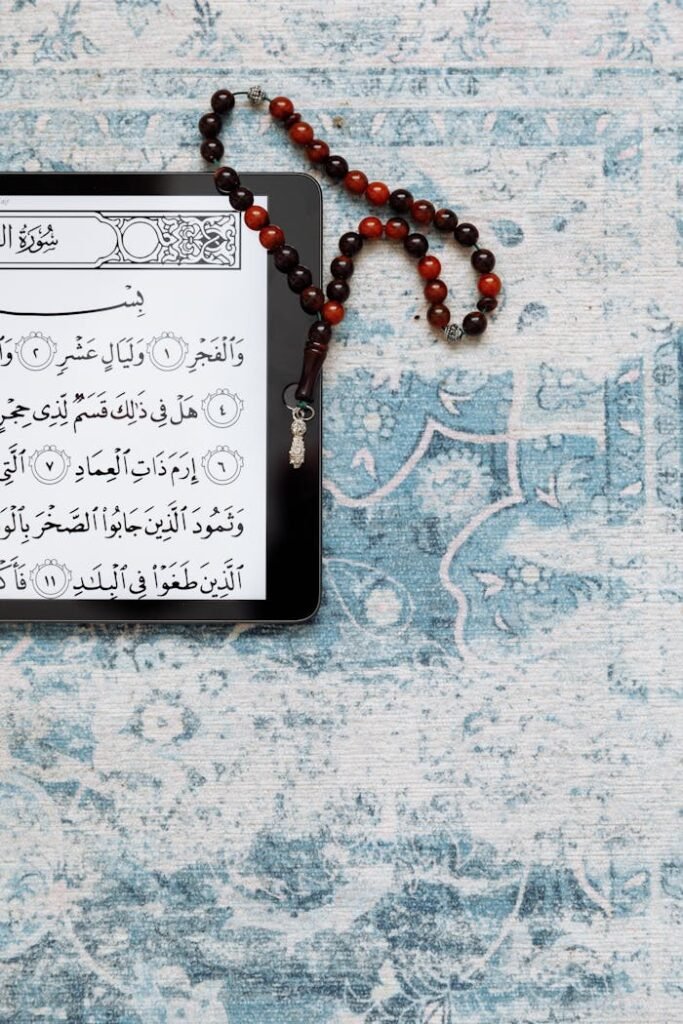 سُورَةُ
بِسْـــــ
وَٱلْفَجْرِ ١ وَلَيَالٍ عَشْرٍ ٢
٤ هَلْ فِى ذَٰلِكَ قَسَمٌ لِّذِى حِجْرٍ
٦ إِرَمَ ذَاتِ ٱلْعِمَادِ ٧ ٱلَّتِى
وَثَمُودَ ٱلَّذِينَ جَابُوا۟ ٱلصَّخْرَ
ٱلَّذِينَ طَغَوْا۟ فِى ٱلْبِلَـٰدِ ١١